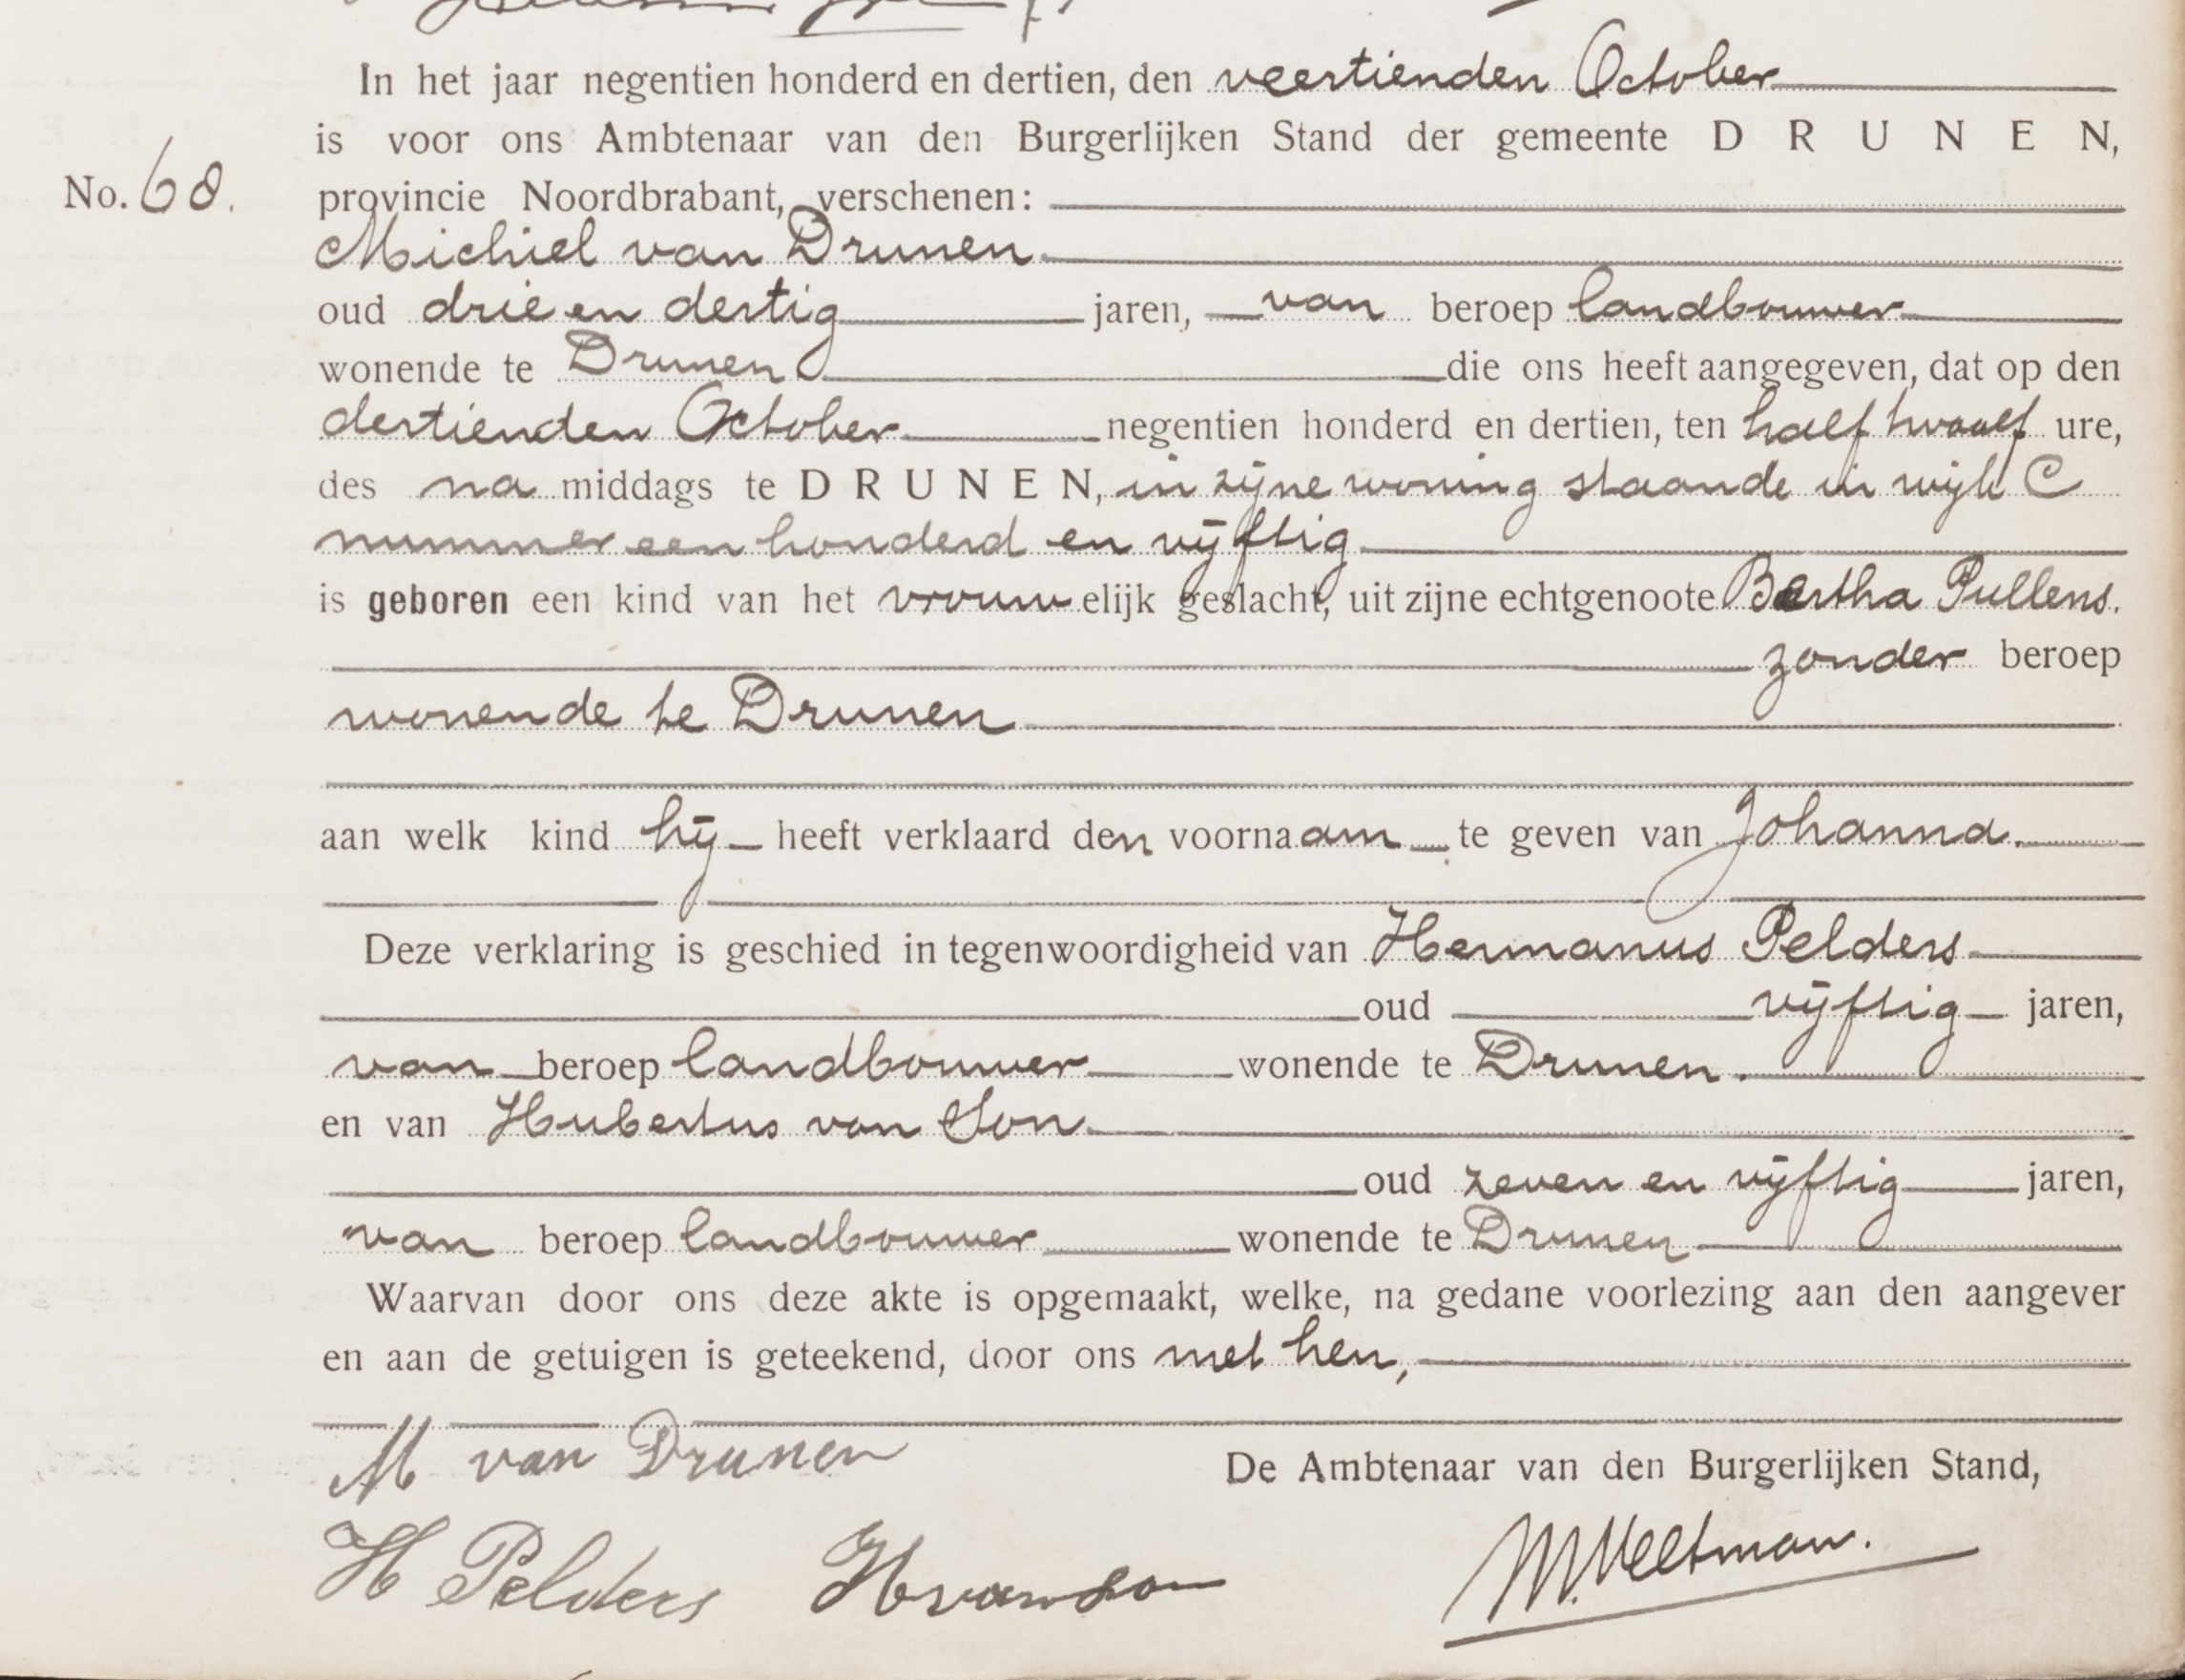 In het jaar negentien honderd en dertien, den veertienden October
is voor ons Ambtenaar van den Burgerlijken Stand der gemeente DRUNEN,
No. 68. provincie Noordbrabant, verschenen:
Michiel van Drunen
oud drie en dertig jaren, van beroep landbouwer
wonende te Drunen die ons heeft aangegeven, dat op den
dertienden October negentien honderd en dertien, ten half twaalf ure,
des na middags te DRUNEN, in zijne woning staande in wijk C
nummer een honderd en vijftig
is geboren een kind van het vrouwelijk geslacht, uit zijne echtgenoote Bertha Pullens.
zonder beroep
wonende te Drunen
aan welk kind hij heeft verklaard den voornaam te geven van Johanna.
Deze verklaring is geschied in tegenwoordigheid van Hermanus Pelders
oud vijftig jaren,
van beroep landbouwer wonende te Drunen.
en van Hubertus van Son
oud zeven en vijftig jaren,
van beroep landbouwer wonende te Drunen
Waarvan door ons deze akte is opgemaakt, welke, na gedane voorlezing aan den aangever
en aan de getuigen is geteekend, door ons met hen,
M van Drunen
De Ambtenaar van den Burgerlijken Stand,
H Pelders H van Son M. Veltman.